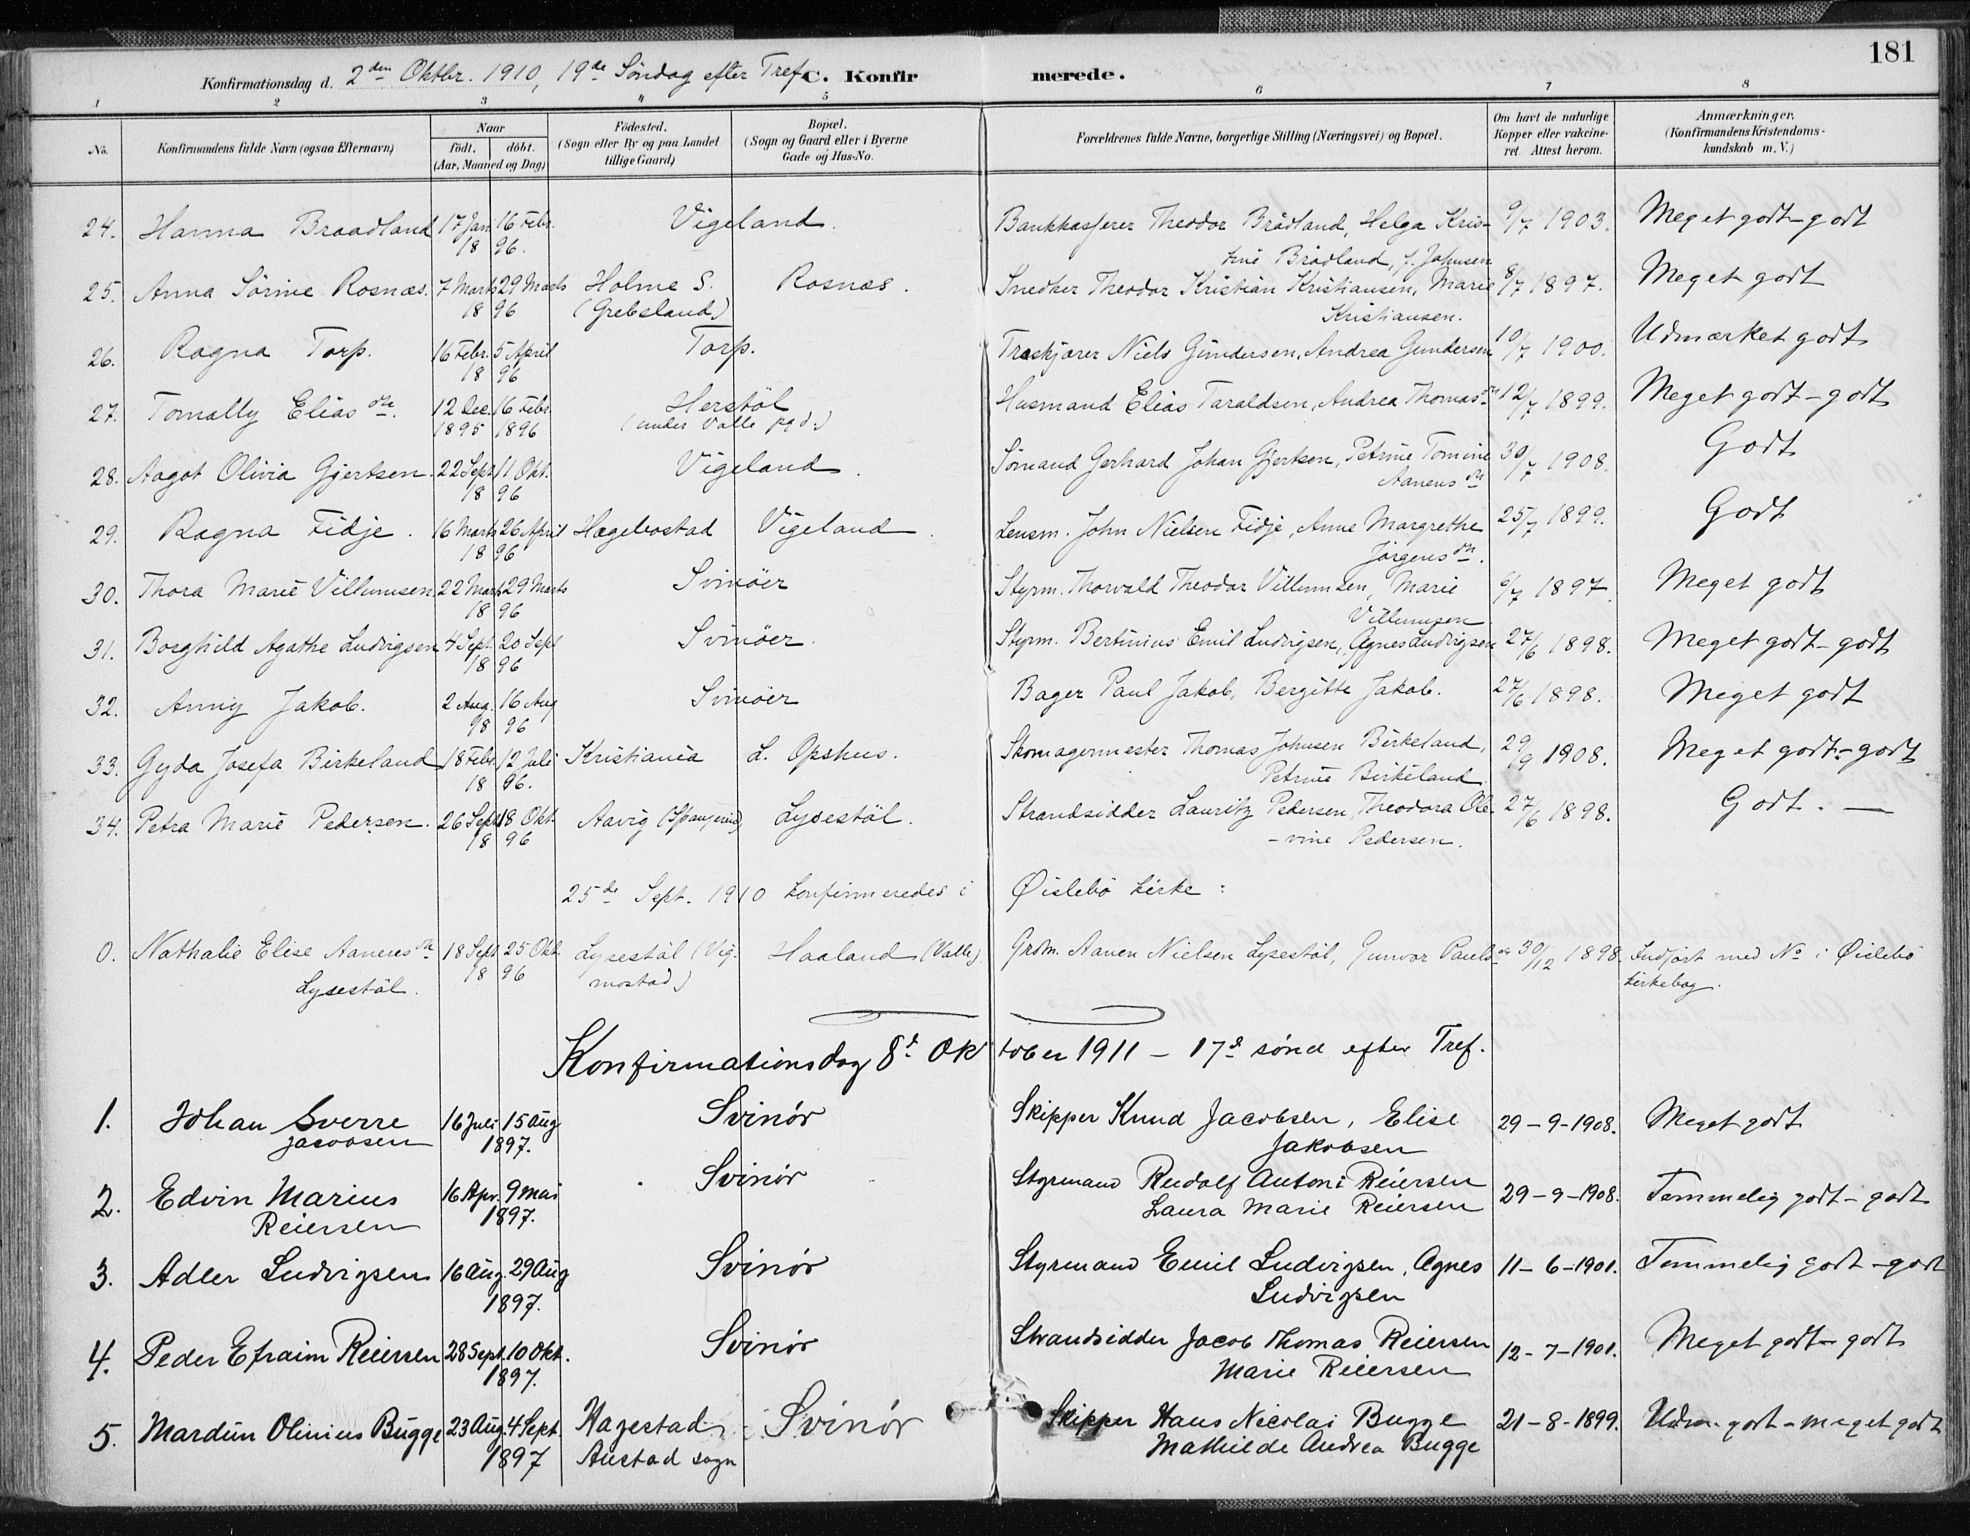 181
Konfirmationsdag d. 2den Oktbr. 1910, 19de Søndag efter Tref. C. Konfirmerede.
1 2 3 4 5 6 7 8
No. Konfirmandens fulde Navn (ogsaa Efternavn) Naar født. døbt. (Aar, Maaned og Dag) Fødested. (Sogn eller By og paa Landet tillige Gaard) Bopæl. (Sogn og Gaard eller i Byerne Gade og Hus-No. Forældrenes fulde Navne, borgerlige Stilling (Næringsvei) og Bopæl. Om havt de naturlige Kopper eller vakcineret. Attest herom. Anmærkninger. (Konfirmandens Kristendomskundskab m. V.)
24. Hanna Braadland 17 Jan. 16 Febr. Vigeland. Bankkasserer Theodor Brådland, Helga Kris- 9/7 1903. Meget godt - godt
18 96. tine Brådland, f. Johnsen
25. Anna Sørine Rosnæs. 7 Marts 29 Marts Holme S. Rosnæs. Snedker Theodor Kristian Kristiansen, Marie 8/7 1897. Meget godt
18 96 (Grebsland) Kristiansen.
26. Ragna Torp. 16 Febr. 5 April Torp. Træskjærer Niels Gundersen, Andrea Gundersen 10/7 1900. Udmærket godt
18 96
27. Tomally Elias dtr. 12 Dec. 16 Febr. Herstöl Husmand Elias Taraldsen, Andrea Thomas dtr 12/7 1899. Meget godt - godt
1895 1896 (under Valle pgd.)
28. Aagot Olivia Gjertsen. 22 Sept. 11 Okt. Vigeland. Sømand Gerhard Johan Gjertsen, Petrine Tomine 30/7 1908. Godt
18 96 Aanens dtr
29. Ragna Fidje. 16 Marts 26 April Hægebostad Vigeland. Lensm. John Nielsen Fidje, Anne Margrethe 25/7 1899. Godt
18 96 Jørgens dtr.
30. Thora Marie Villumsen 22 Marts 29 Marts Svinöer Styrm. Thorvald Theodor Villumsen, Marie 6/7 1897. Meget godt
18 96 Villumsen
31. Borghild Agathe Ludvigsen 4 Sept. 20 Sept Svinöer. Styrm. Bertinius Emil Ludvigsen, Agnes Ludvigsen 27/6 1898. Meget godt - godt
18 96
32. Anny Jakob. 2 Aug. 16 Aug Svinöer Bager Paul Jakob, Bergitte Jakob. 27/6 1898. Meget godt
18 96
33. Gyda Josefa Birkeland 18 Febr. 12 Juli Kristiania L. Opshus. Skomagermester Thomas Johnsen Birkeland, 29/9 1908. Meget godt - godt
18 96. Petrine Birkeland
34. Petra Marie Pedersen. 26 Sept. 18 Okt. Aavig (Spangerei) Lysestöl. Strandsidder Lauritz Pedersen, Theodora Ole- 27/6 1898. Godt. —
18 96 - vine Pedersen.
25de Sept. 1910 konfirmeredes i Øislebö kirke:
0. Nathalie Elise Aanens dtr 18 Sept 25 Okt. Lysestöl (Vig- Haaland (Valle) Grdm. Aanen Nielsen Lysestöl, Gunvor Pauls dtr 30/12 1898. Indført med No i Øislebö
Lysestöl. 18 96 mostad) kirkebog.
Konfirmationsdag 8d Oktober 1911 – 17d sønd efter Tref.
1. Johan Sverre 16 Juli 15 Aug Svinør Skipper Knud Jacobsen, Elise 29-9-1908. Meget godt
Jacobsen 1897. Jakobsen
2. Edvin Marius 16 Apr. 9 Mai Svinør Styrmand Rudolf Antoni Reiersen 29-9-1908. Temmelig godt - godt
Reiersen 1897. Laura Marie Reiersen
3. Adler Ludvigsen 16 Aug. 29 Aug Svinør Styrmand Emil Ludvigsen, Agnes 11-6-1901. Temmelig godt - godt
1897. Ludvigsen
4. Peder Efraim Reiersen 28 Sept. 10 Okt. Svinør Strandsidder Jacob Thomas Reiersen 12-7-1901. Meget godt - godt
1897. Marie Reiersen
5. Mardun Olinius Bugge 23 Aug. 4 Sept. Hagestad Svinør Skipper Hans Nicolai Bugge 21-8-1899. Udm. godt - meget godt
1897 Austad sogn Mathilde Andrea Bugge